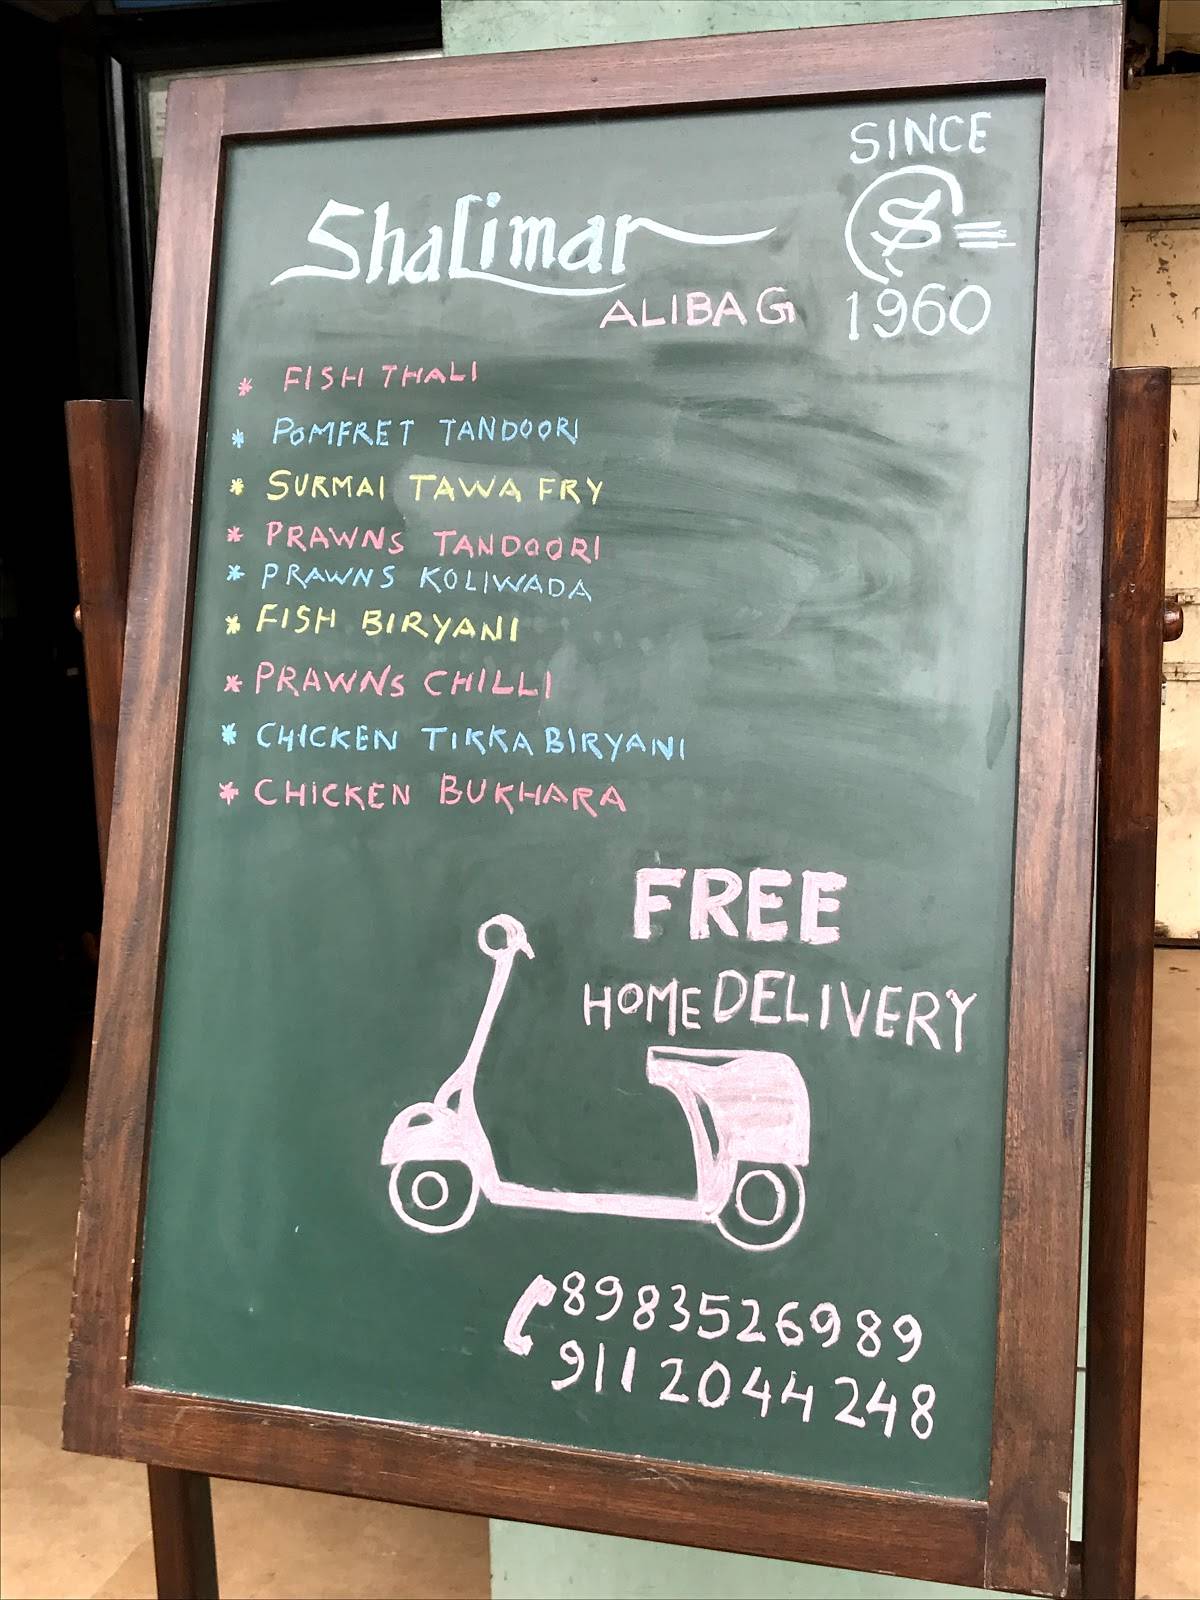 SINCE
S
1960
Shalimar
ALIBAG
* FISH THALI
* POMFRET TANDOORI
* SURMAI TAWA FRY
* PRAWNS TANDOORI
* PRAWNS KOLIWADA
* FISH BIRYANI
* PRAWNS CHILLI
* CHICKEN TIKKA BIRYANI
* CHICKEN BUKHARA
FREE
HOME DELIVERY
8983526989
9112044248